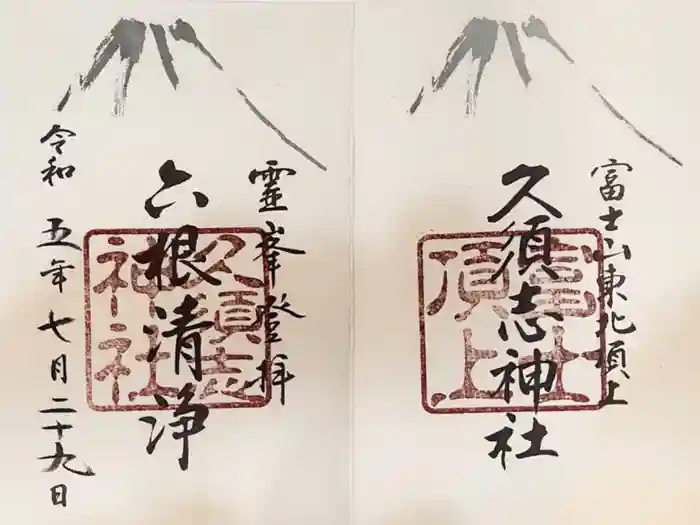 富士山東北頂上
久須志神社
富士
頂上
靈峯登拝
六根清浄
久須志
神社
令和五年七月二十九日